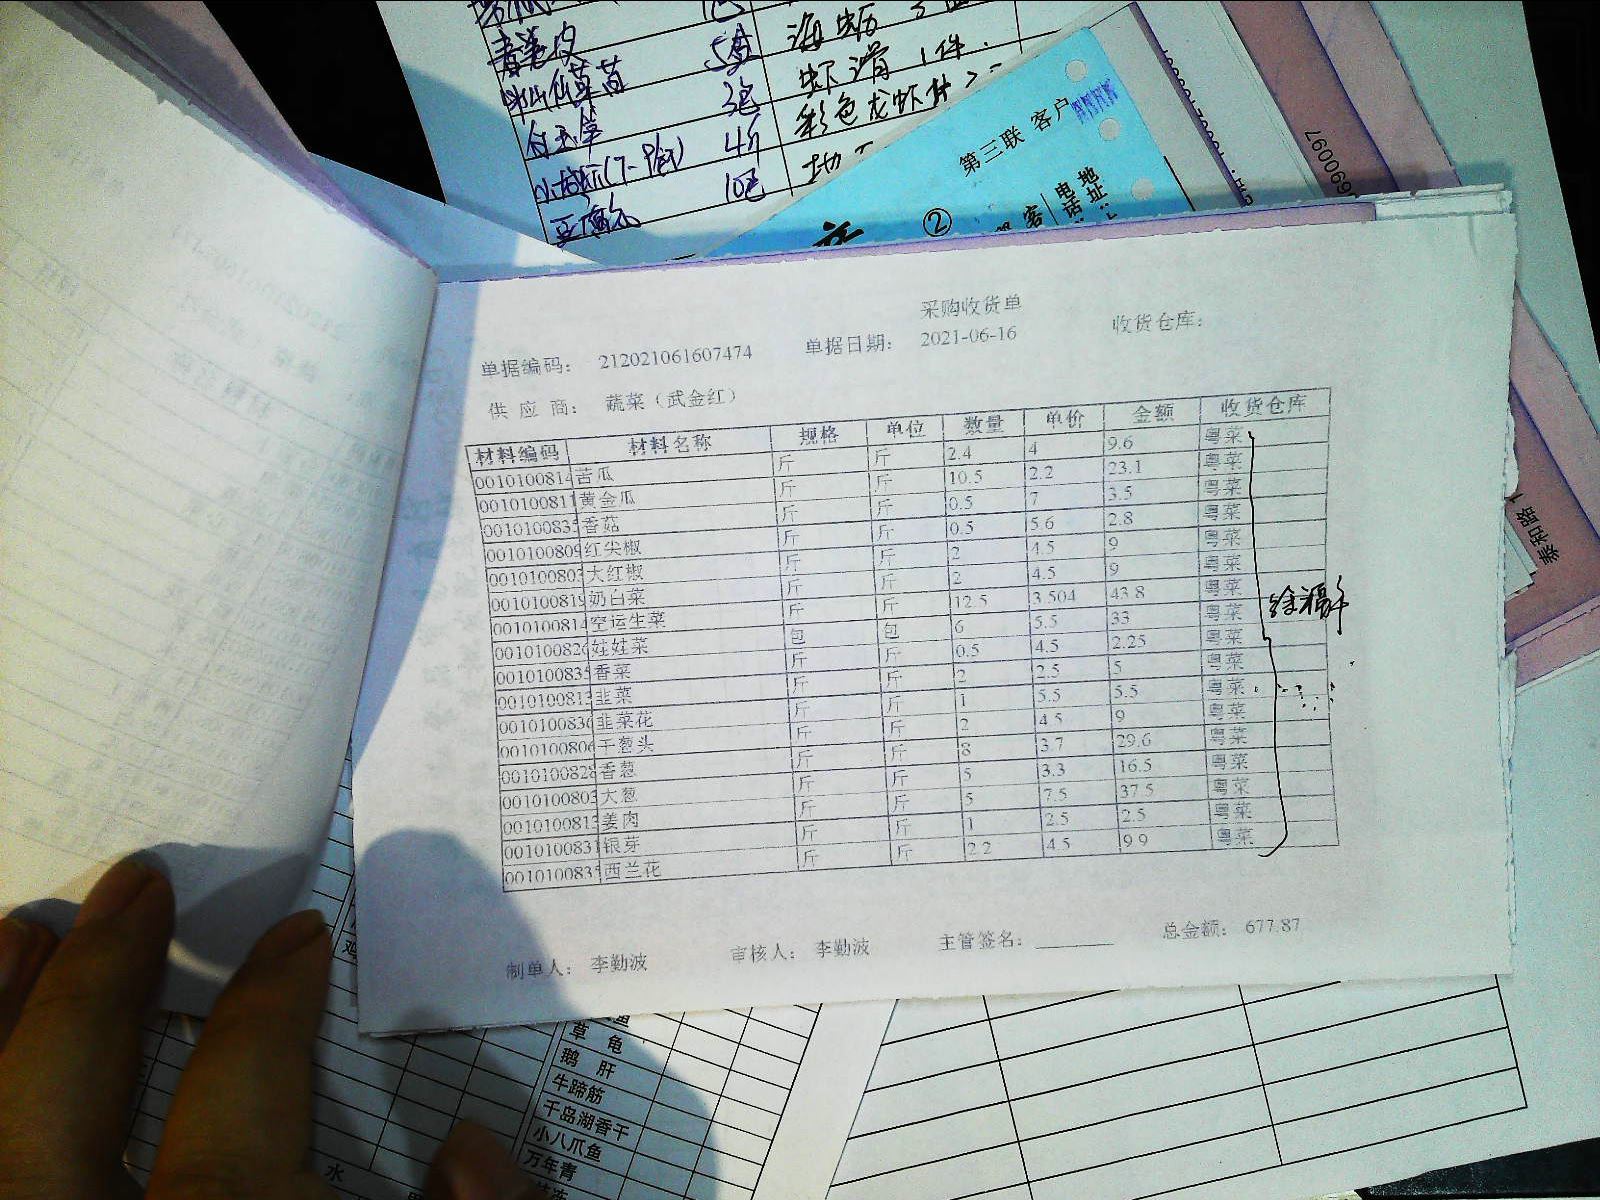 5盒
海蛎
虾滑 1件
3包
彩色龙虾片
4斤
10包
豆腐
第三联 客户
②
客
电话:
地址:
采购收货单
单据编码: 212021061607474 单据日期: 2021-06-16 收货仓库:
供 应 商: 蔬菜（武金红）
材料编码 材料名称 规格 单位 数量 单价 金额 收货仓库
0010100814 苦瓜 斤 斤 2.4 4 9.6 粤菜
0010100811 黄金瓜 斤 斤 10.5 2.2 23.1 粤菜
0010100835 香菇 斤 斤 0.5 7 3.5 粤菜
0010100809 红尖椒 斤 斤 0.5 5.6 2.8 粤菜
0010100803 大红椒 斤 斤 2 4.5 9 粤菜
0010100819 奶白菜 斤 斤 2 4.5 9 粤菜
0010100814 空运生菜 斤 斤 12.5 3.504 43.8 粤菜
0010100826 娃娃菜 包 包 6 5.5 33 粤菜
0010100835 香菜 斤 斤 0.5 4.5 2.25 粤菜
0010100813 韭菜 斤 斤 2 2.5 5 粤菜
0010100836 韭菜花 斤 斤 1 5.5 5.5 粤菜
0010100806 干葱头 斤 斤 2 4.5 9 粤菜
0010100828 香葱 斤 斤 8 3.7 29.6 粤菜
0010100803 大葱 斤 斤 5 3.3 16.5 粤菜
0010100813 姜肉 斤 斤 5 7.5 37.5 粤菜
0010100831 银芽 斤 斤 1 2.5 2.5 粤菜
0010100835 西兰花 斤 斤 2.2 4.5 9.9 粤菜
制单人: 李勤波 审核人: 李勤波 主管签名: 总金额: 677.87
草 龟
鹅 肝
牛蹄筋
千岛湖香干
小八爪鱼
万年青
水